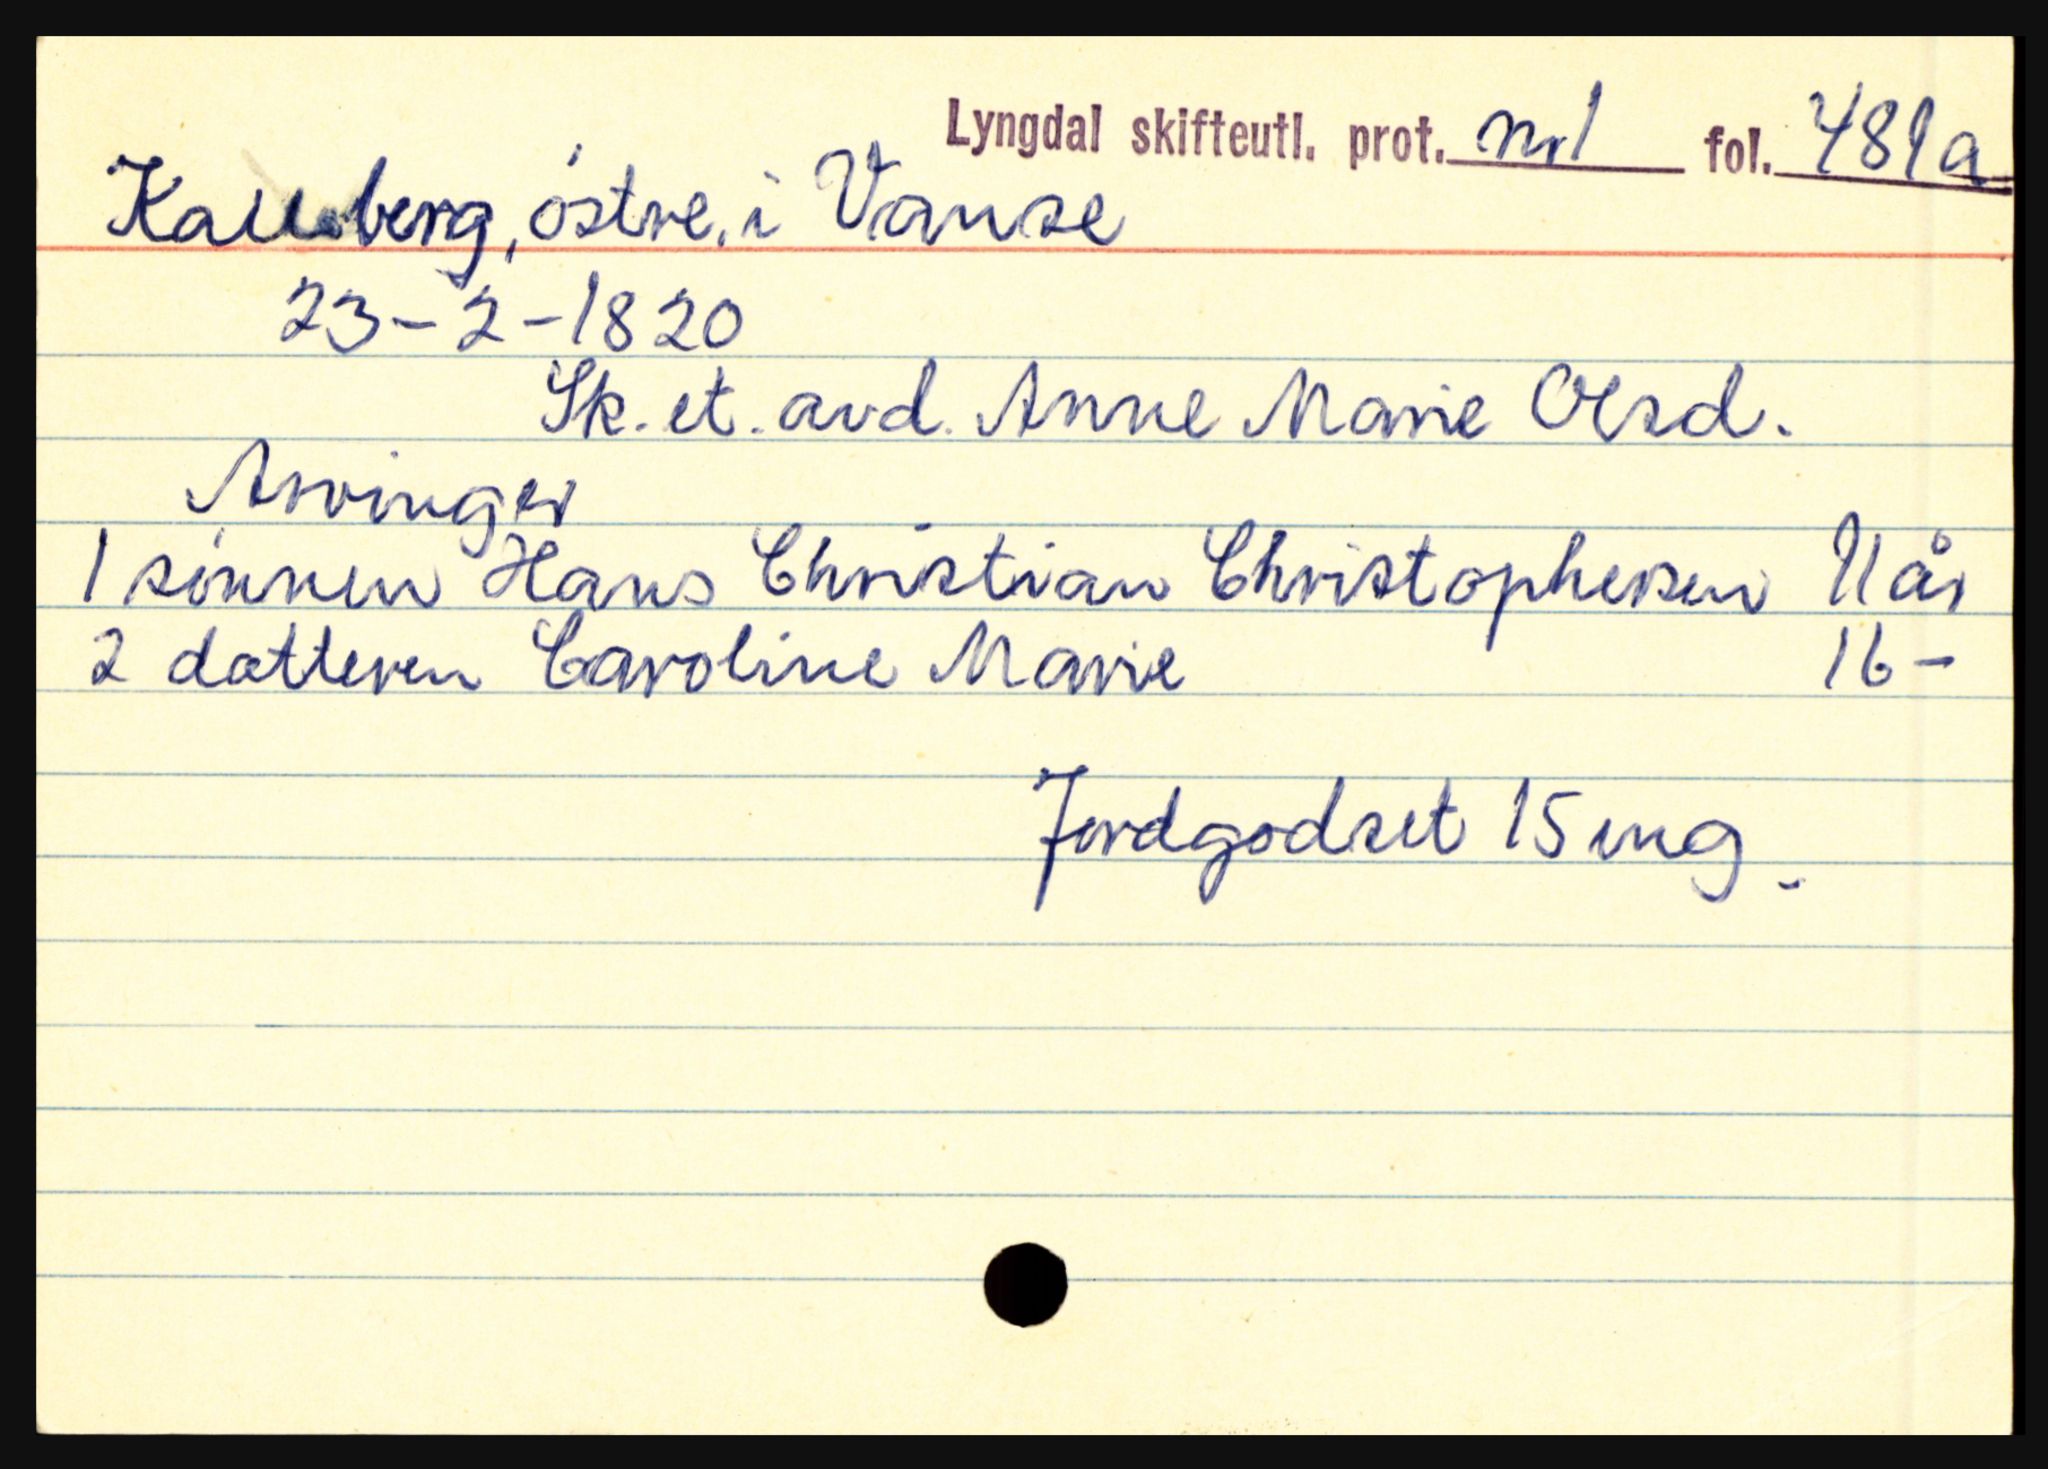 Lyngdal skifteutl. prot. nr 1 fol. 481a
Kalleberg, østre, i Vanse
23-2-1820
Sk. et. avd. Anne Marie Olsd.
Arvinger
1 sønnen Hans Christian Christophersen 11 år
2 datteren Caroline Marie 16 -
Jordgodset 15 eng.